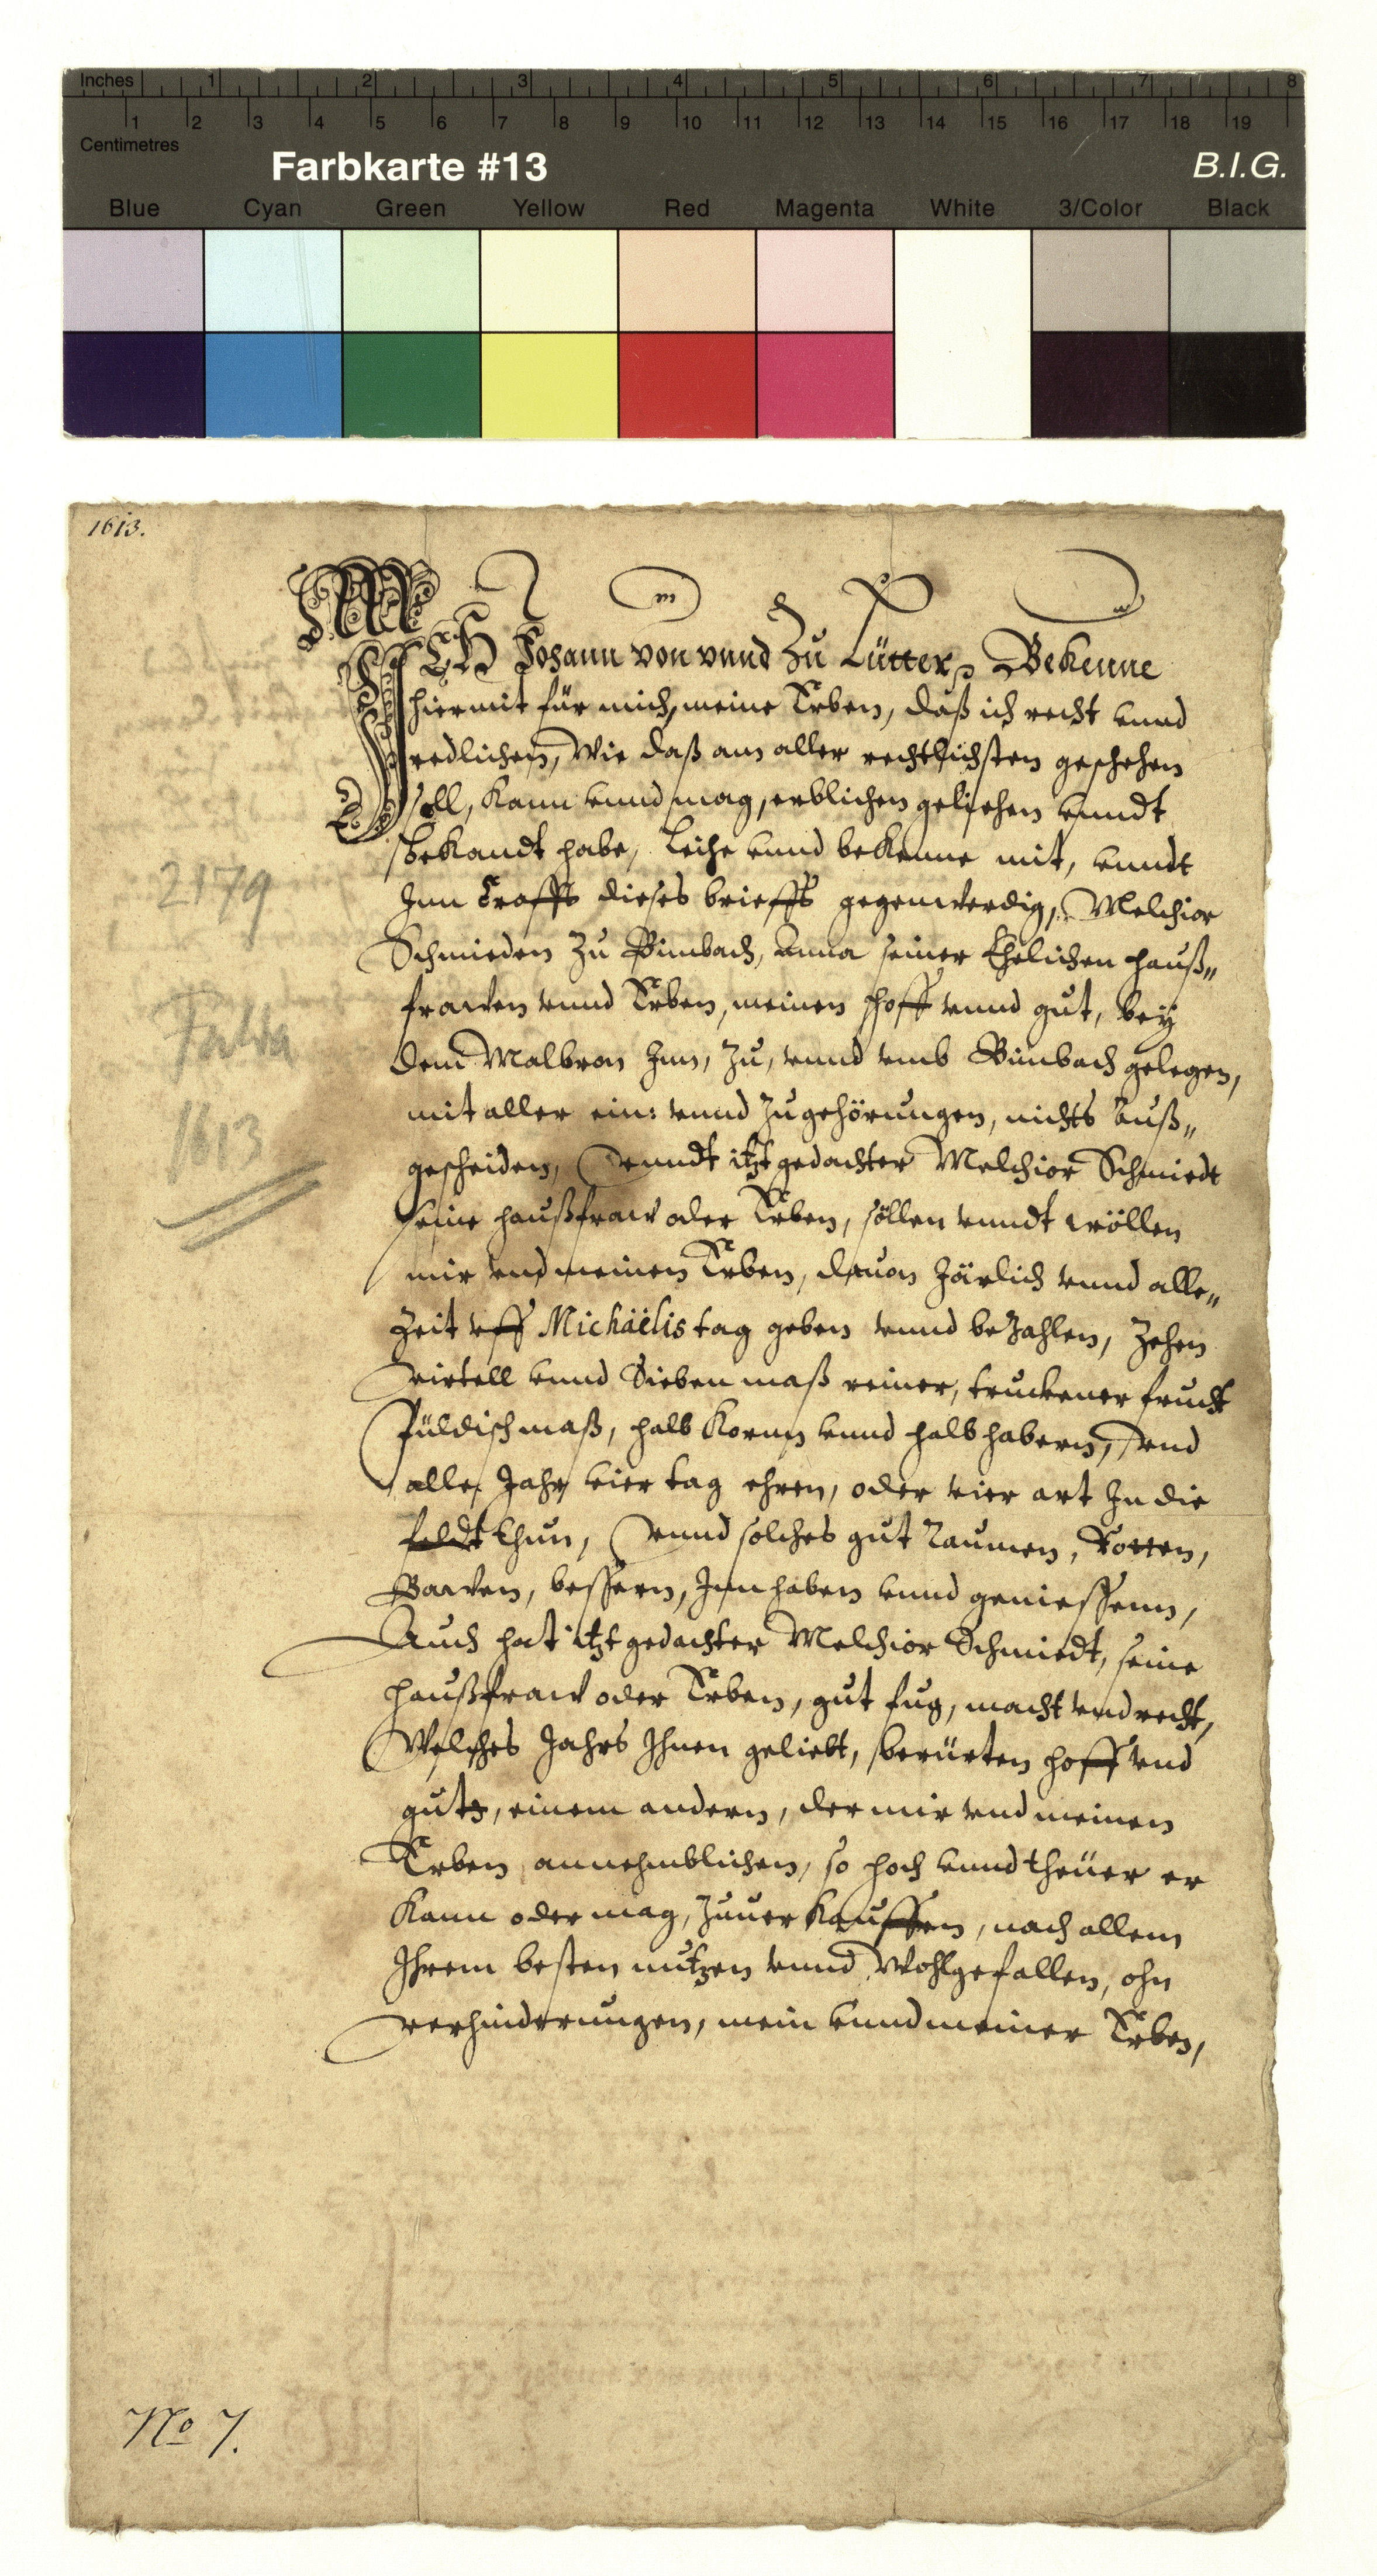 Inches 1 2 3 4 5 6 7 8
1 2 3 4 5 6 7 8 9 10 11 12 13 14 15 16 17 18 19
Centimetres
Farbkarte #13 B.I.G.
Blue Cyan Green Yellow Red Magenta White 3/Color Black
1613.
ICH Johann von vnnd Zu Lütter, Bekenne
hiermit für mich, meine Erben, daß ich recht vnnd
redlichen, Wie daß am aller rechtlichsten geschehen
soll, Kann vnnd mag, erblichen geliehen vnndt
bekandt habe, Leihe vnnd bekenne mit, vnndt
Inn Craffts dieses brieffs gegenwerdig, Melchior
Schmieden Zu Bimbach, Anna seiner Ehelichen hauß„
frawen vnnd Erben, meinen Hoff vnnd gut, bey
dem Malbron Inn, Zu, vnnd vmb Bimbach gelegen,
mit aller ein: vnnd Zugehörungen, nichts auß„
gescheiden, Vnndt itzt gedachter Melchior Schmiedt
seine haußfraw oder Erben, söllen vnndt wöllen
mir vnd meinen Erben, dauon Järlich vnnd alle„
Zeit vff Michaëlis tag geben vnnd beZahlen, Zehen
Virtell vnnd Sieben maß reiner, truckener frucht
Füldisch maß, halb Kornn vnnd halb habern, Vnd
alle Jahr vier tag ehren, oder vier art In die
feldt thun, Vnnd solches gut Raumen, Rotten,
Bawen, bessern, Innhaben vnnd geniessenn,
Auch hat itzt gedachter Melchior Schmiedt, seine
haußfraw oder Erben, gut fug, macht vnd recht,
Welches Jahrs Ihnen geliebt, berürten hoff vnd
guts, einem andern, der mir vnd meinen
Erben annehmblichen, so hoch vnnd theüer er
Kann oder mag, Zuuerkauffen, nach allem
Ihrem besten nutzen vnnd Wohlgefallen, ohn
Verhinderungen, mein vnnd meiner Erben,
2179
Fulda
1613
No 7.